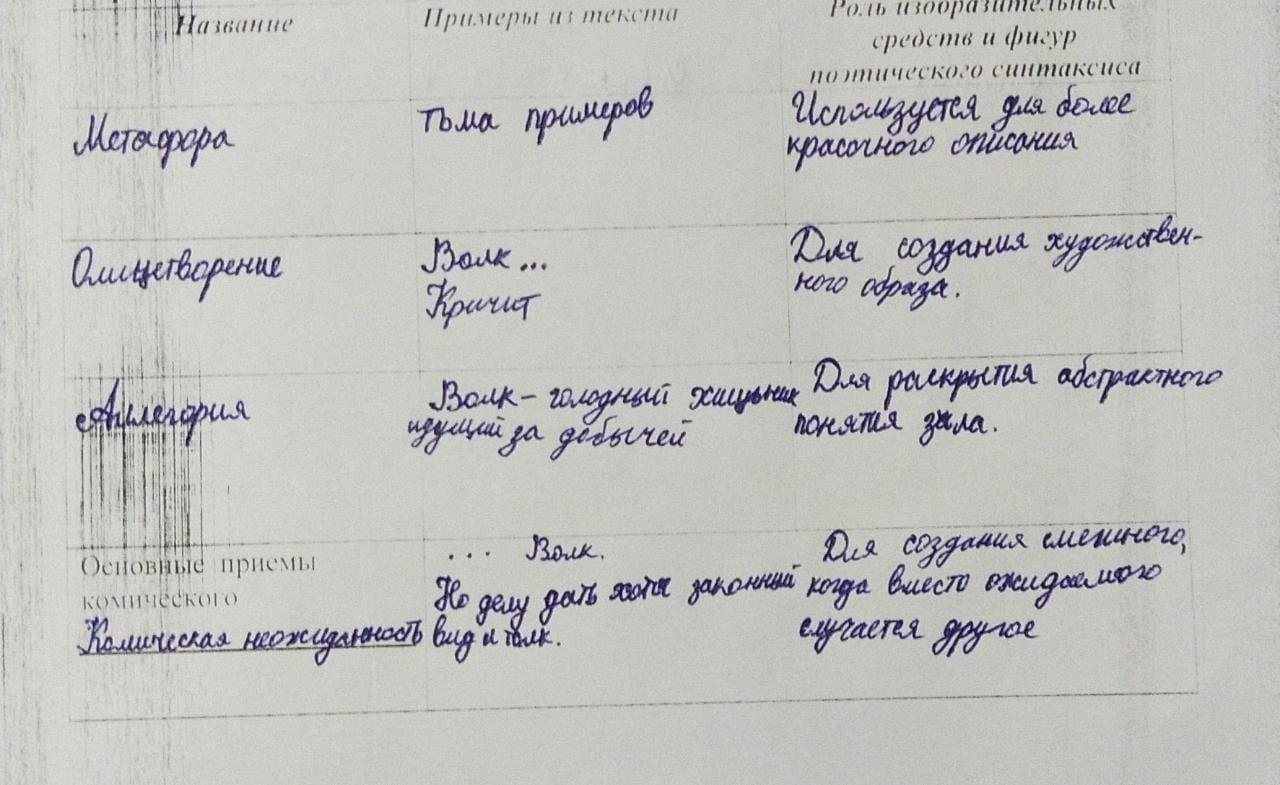 Название
Примеры из текста
Роль изобразительных
средств и фигур
поэтического синтаксиса
Метафора
тьма примеров
Используется для более
красочного описания
Олицетворение
Волк...
Кричит
Для создания художествен-
ного образа.
Аллегория
Волк - голодный хищник
идущий за добычей
Для раскрытия абстрактного
понятия зла.
Основные приемы
комического
Комическая неожиданность
... Волк.
Но делу дать хотя законный
вид и толк.
Для создания смешного,
когда вместо ожидаемого
случается другое